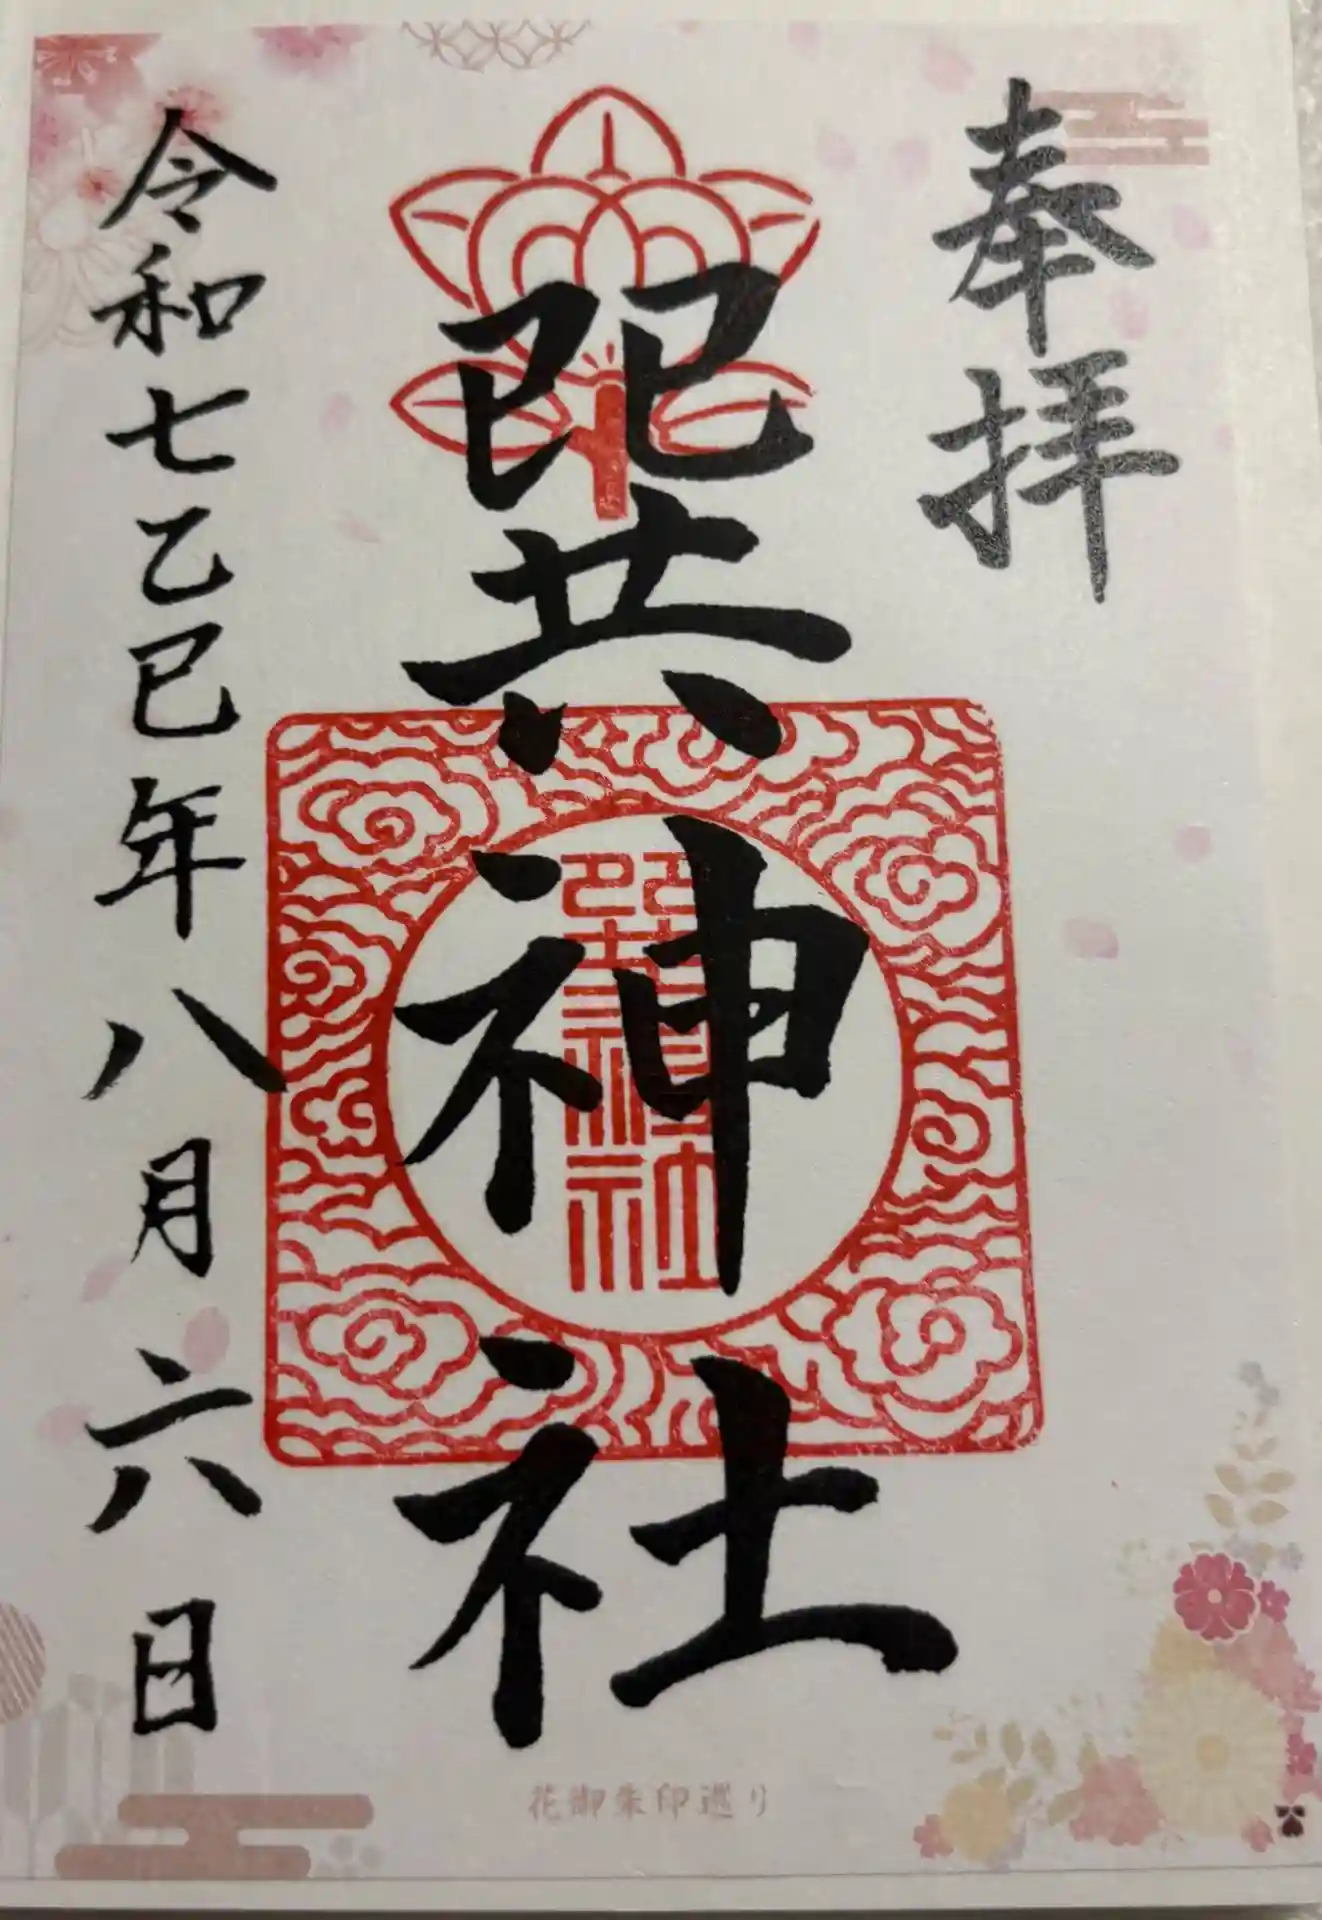 奉拝
巽神社
令和七乙巳年八月六日
巽神社
花御朱印巡り